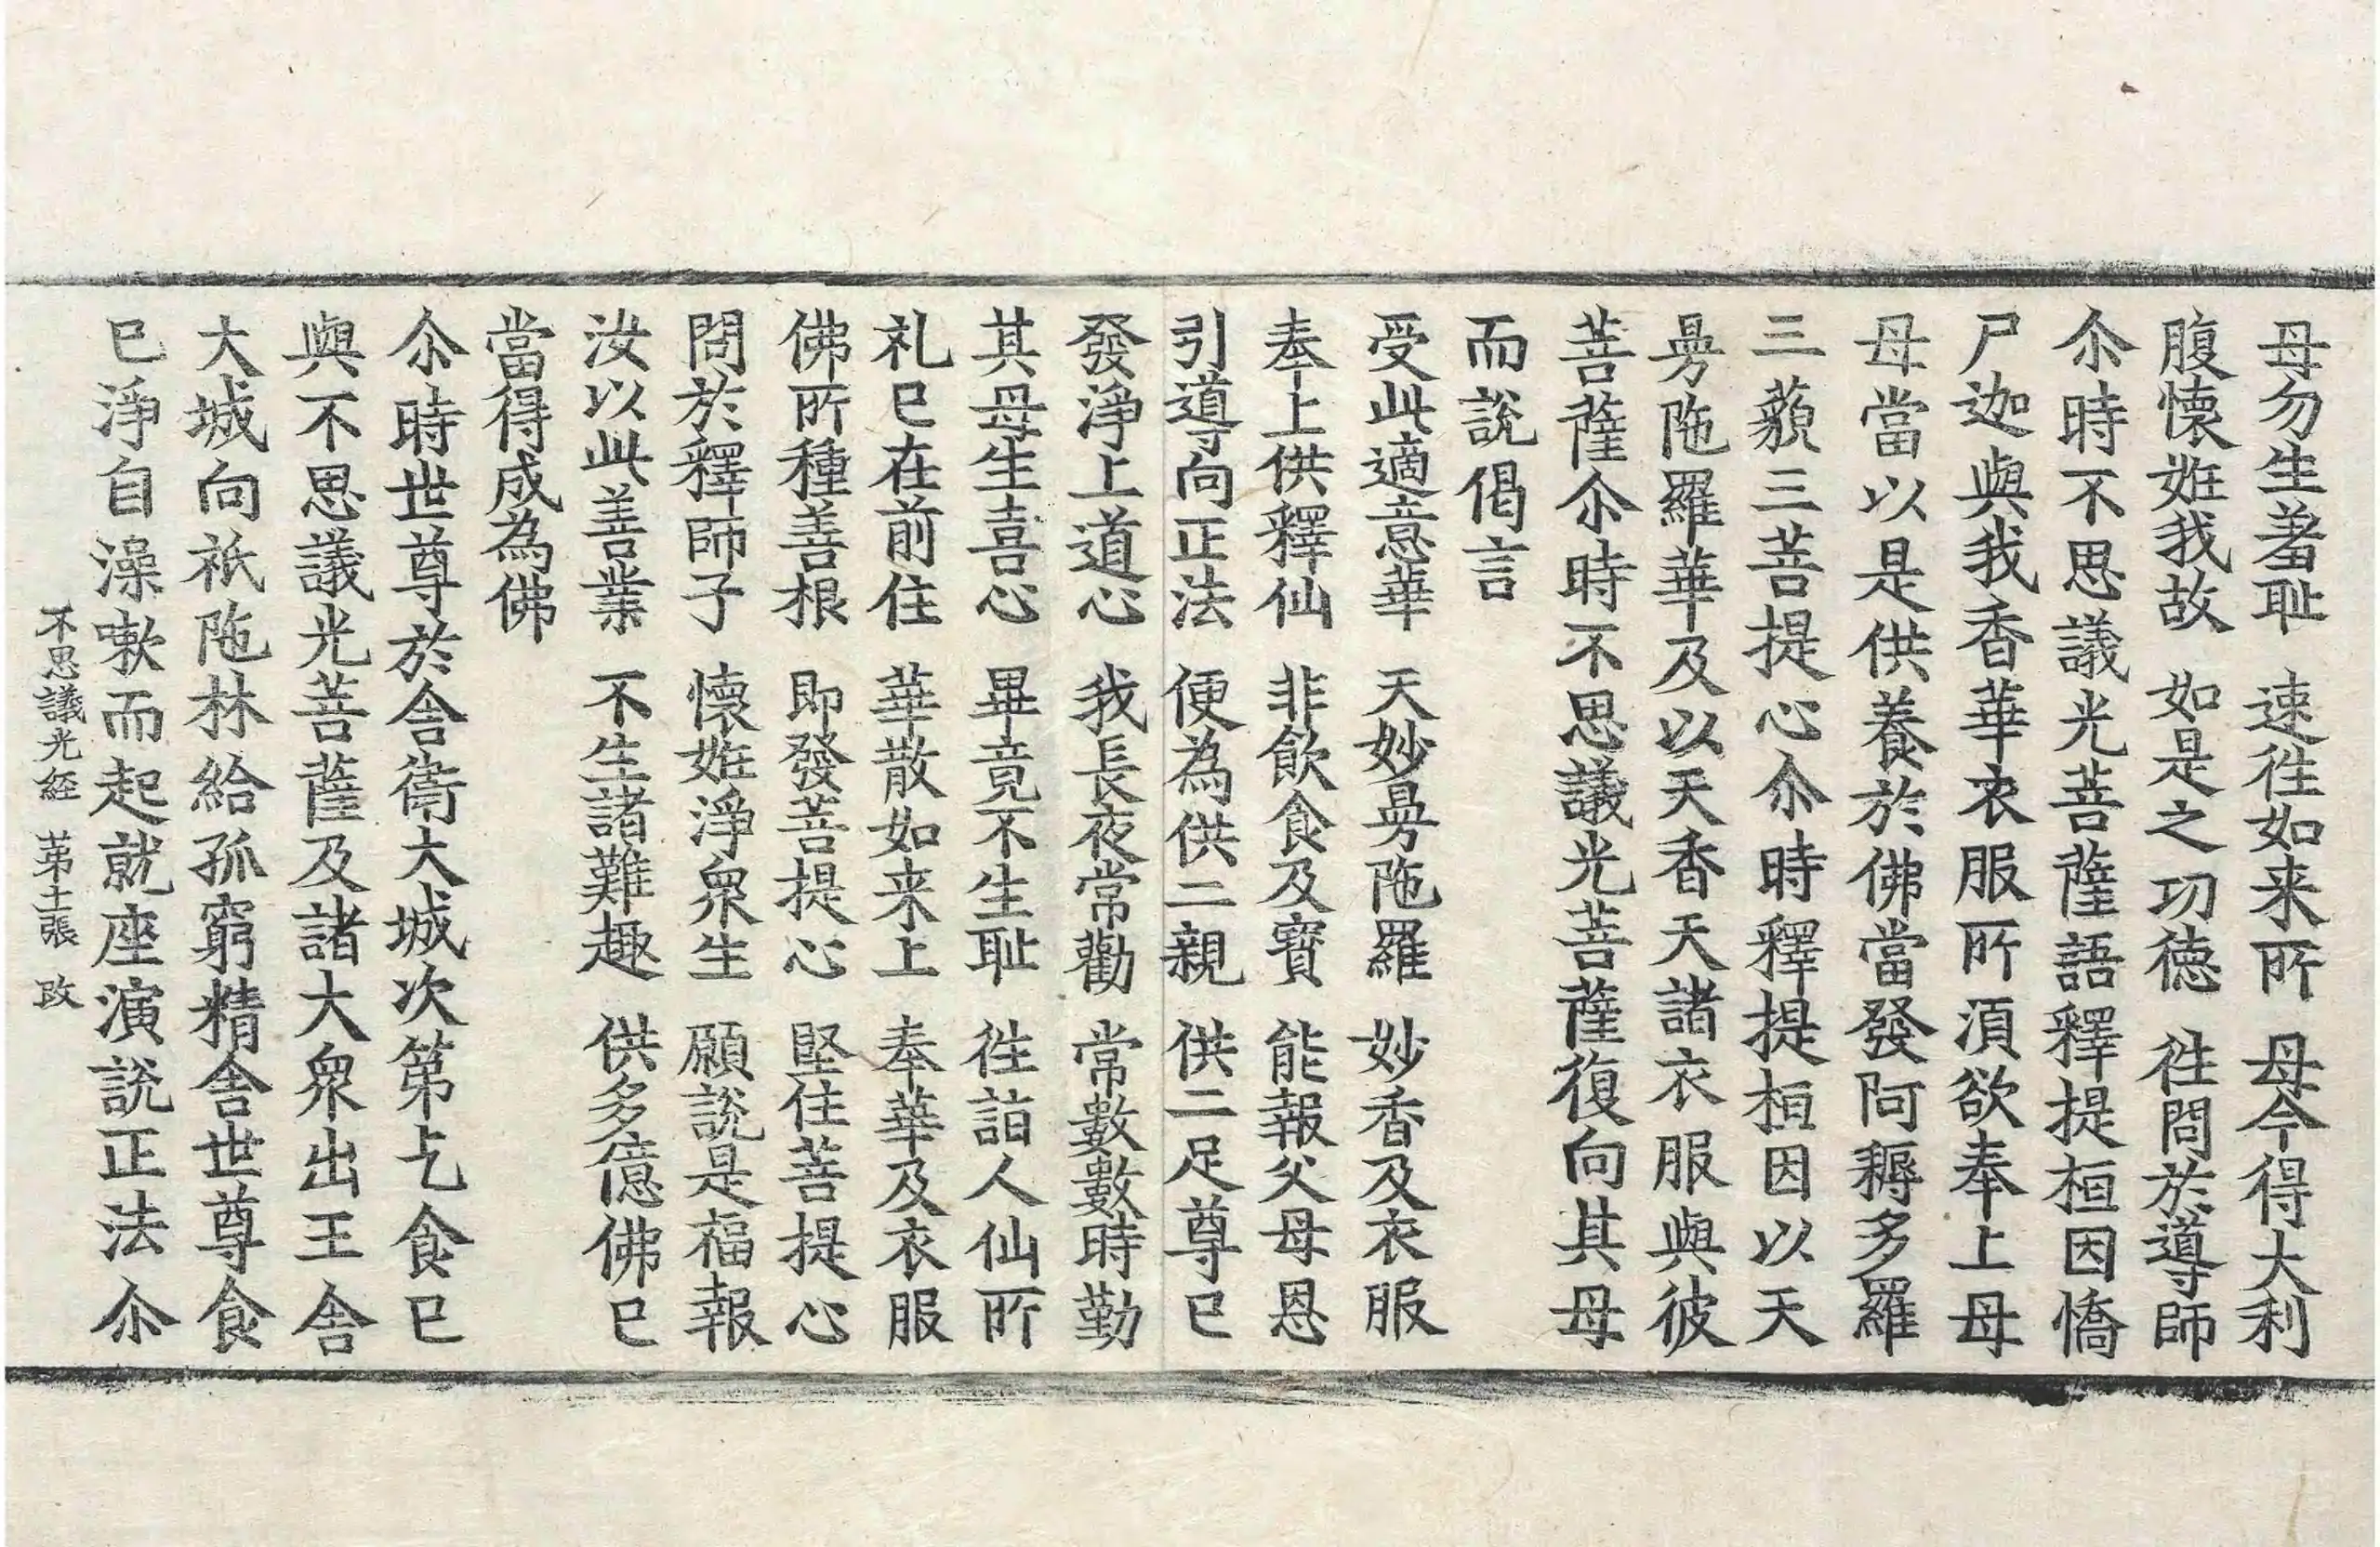 母勿生羞耻　速徃如来所　母今得大利
腹懐姙我故　如是之功徳　徃問於導師
尒時不思議光菩薩語釋提桓因憍
尸迦與我香華衣服所湏欲奉上母
母當以是供養於佛當發阿耨多羅
三藐三菩提心尒時釋提桓因以天
曼陁羅華及以天香天諸衣服與彼
菩薩尒時不思議光菩薩復向其母
而說偈言
受此適意華　天妙曼陁羅　妙香及衣服
奉上供釋仙　非飲食及寶　能報父母恩
引導向正法　便為供二親　供二足尊已
發淨上道心　我長夜常勸　常數數時勤
其母生喜心　畢竟不生耻　徃詣人仙所
礼已在前住　華散如来上　奉華及衣服
佛所種善根　即發菩提心　堅住菩提心
問於釋師子　懐姙淨衆生　願說是福報
汝以此善業　不生諸難趣　供多億佛已
當得成為佛
尒時世尊於舎衛大城次第乞食已
與不思議光菩薩及諸大衆出王舎
大城向祇陁林給孤窮精舎世尊食
已淨自澡嗽而起就座演說正法尒
不思議光経　苐十二張　改